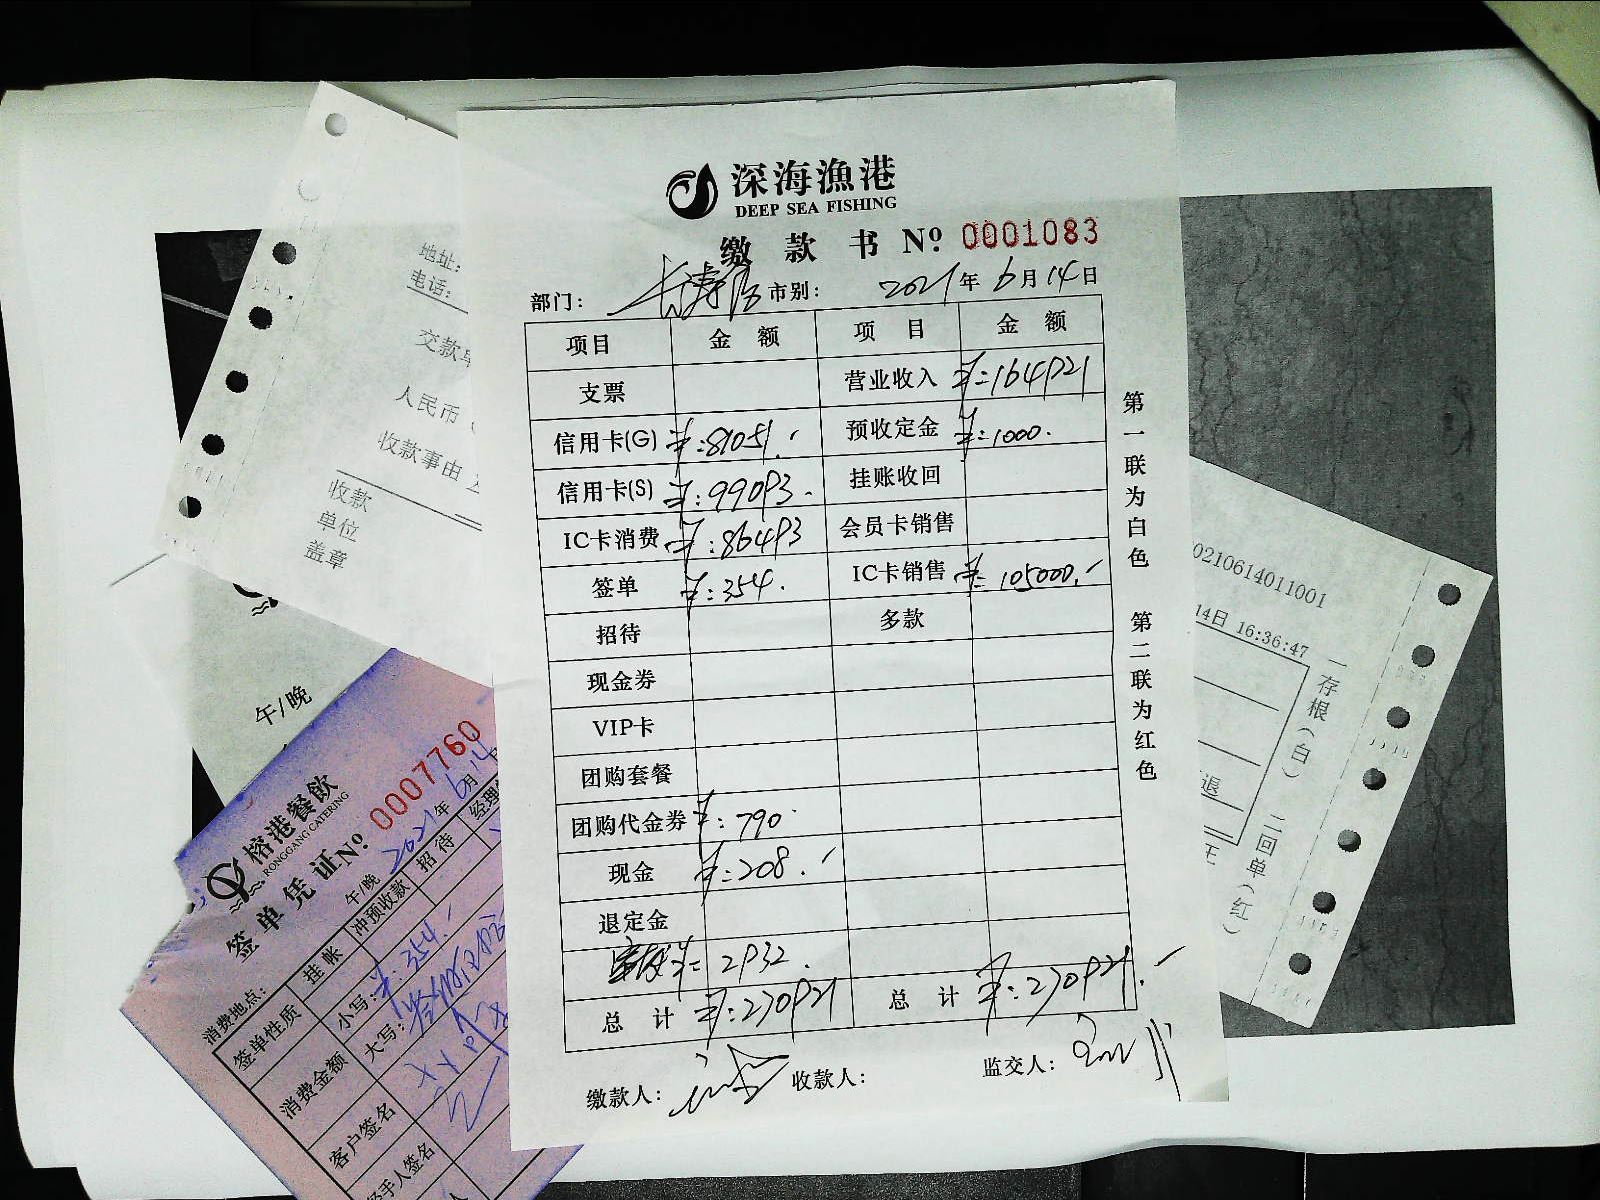 深海漁港
DEEP SEA FISHING
缴款书 Nº 0001083
部门： 市别： 2021年6月14日
项目 金额 项目 金额
支票 营业收入 ¥:164921
信用卡(G) ¥:81051. 预收定金 ¥:1000.
信用卡(S) ¥:99093. 挂账收回
IC卡消费 ¥:86493 会员卡销售
签单 ¥:354. IC卡销售 ¥:105000.
招待 多款
现金券
VIP卡
团购套餐
团购代金券 ¥:790.
现金 ¥:208.
退定金
2932.
总计 ¥:270921 总计 ¥:270921.
缴款人： 收款人： 监交人：
第一联为白色 第二联为红色
地址：
电话：
交款单
人民币（
收款事由
收款
单位
盖章
午/晚
榕港餐飲
RONGGANG CATERING
签单凭证Nº 0007760
消费地点： 午/晚 2021年6月14
签单性质 挂帐 冲预收款 招待 经理
消费金额 小写：¥:354.
大写：
客户签名
经手人签名
人
0210614011001
14日 16:36:47
退
一存根(白) 二回单(红)